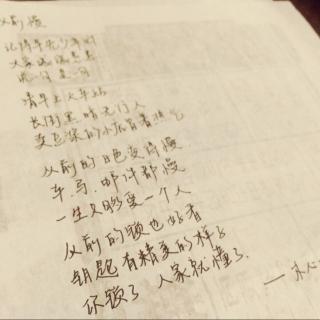 从前慢
记得早先少年时
大家诚诚恳恳
说一句 是一句
清早上火车站
长街黑暗无行人
卖豆浆的小店冒着热气
从前的日色变得慢
车、马、邮件都慢
一生只够爱一个人
从前的锁也好看
钥匙有精美的样子
你锁了 人家就懂了.
——木心